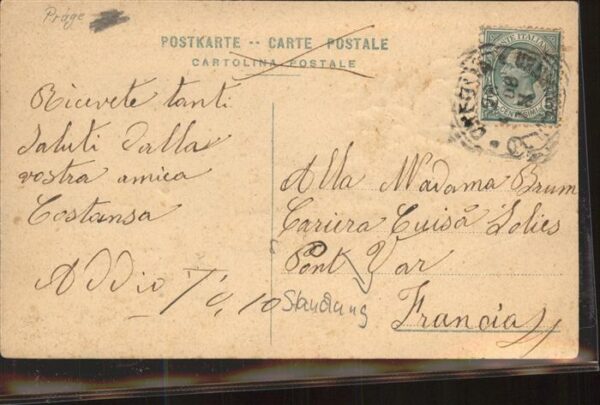 Präge
POSTKARTE -- CARTE POSTALE
CARTOLINA POSTALE
Ricevete tanti
saluti dalla
vostra amica
Costansa
Addio
Alla Madama Brun
Cariera Luisa Solies
Pont Var
Francia